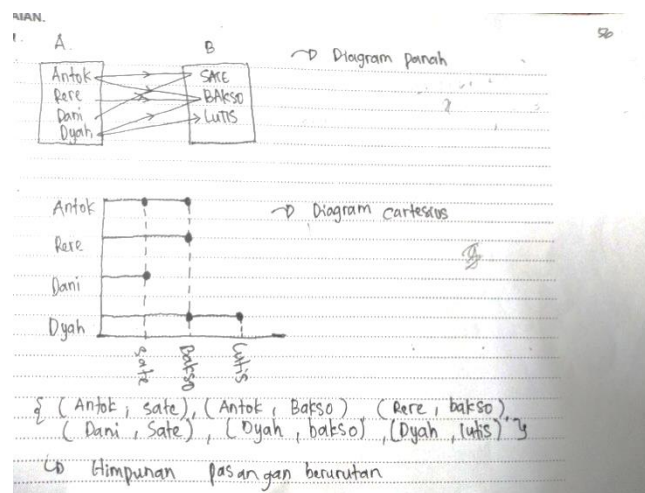 AIAN.
56
1.
A B
→ Diagram panah
Antok
Rere
Dani
Dyah
SATE
BAKSO
LUTIS
→ Diagram cartesius
Antok
Rere
Dani
Dyah
Sate
Bakso
Lutis
{ (Antok, sate), (Antok, Bakso), (Rere, bakso),
(Dani, Sate), (Dyah, bakso), (Dyah, lutis) }
↳ Himpunan pasangan berurutan